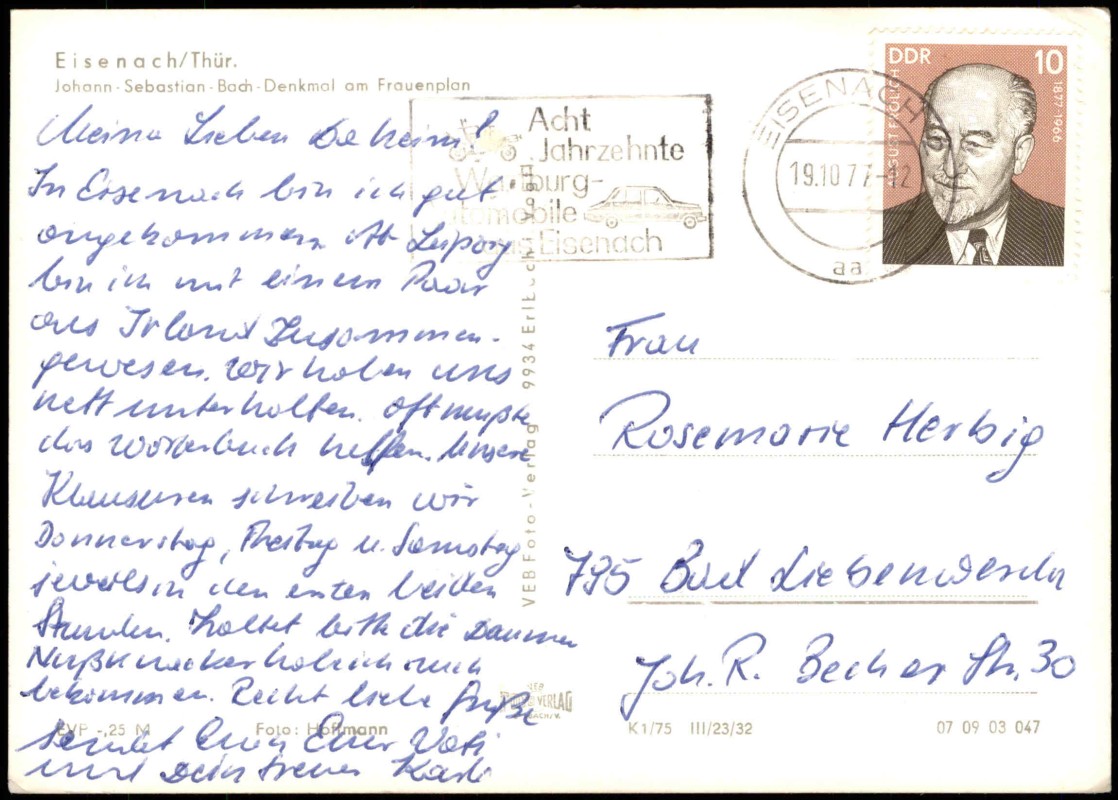 Eisenach/Thür.
Johann-Sebastian-Bach-Denkmal am Frauenplan
Meine Lieben Daheim!
In Eisenach bin ich gut
angekommen. Ab Leipzig
bin ich mit einem Paar
aus Irland zusammen-
gewesen. Wir haben uns
nett unterhalten. Oft mußte
das Wörterbuch helfen. Unsere
Klausuren schreiben wir
Donnerstag, Freitag u. Samstag
jeweils in den ersten beiden
Stunden. Haltet bitte die Daumen
Nußknacker hab ich auch
bekommen. Recht liebe Grüße
sendet Euch Euer Vati
und Dein treuer Karli
EVP -,25 M
Foto: Hoffmann
VEB Foto-Verlag 9934 Erlbach
Acht
Jahrzehnte
Wartburg-
Automobile
aus Eisenach
EISENACH
19.10.77-12
aa
DDR
10
AUGUST FRÖLICH
1877-1966
Frau
Rosemarie Herbig
795 Bad Liebenwerda
Joh. R. Becher Str. 30
VERLAG
K1/75 III/23/32
07 09 03 047